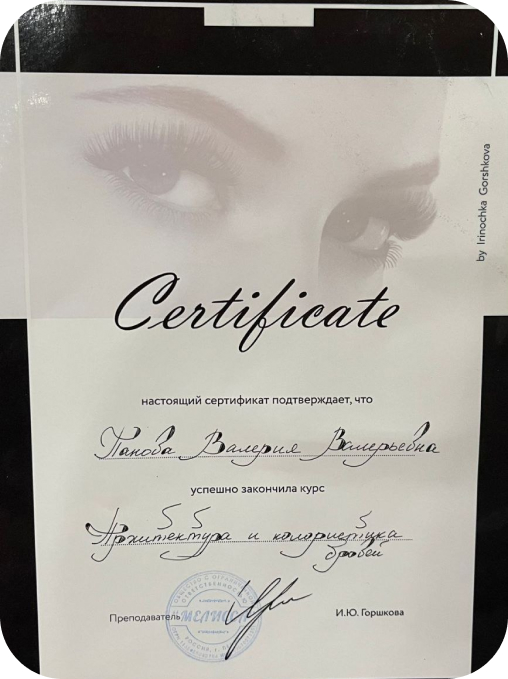 by Irinochka Gorshkova
Certificate
настоящий сертификат подтверждает, что
Панова Валерия Валерьевна
успешно закончила курс
Архитектура и колористика
бровей
Преподаватель
И.Ю. Горшкова